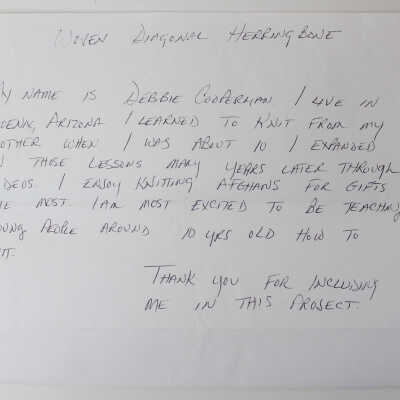 WOVEN DIAGONAL HERRINGBONE
MY NAME IS DEBBIE COOPERMAN I LIVE IN
ARIZONA I LEARNED TO KNIT FROM MY
OTHER WHEN I WAS ABOUT 10 I EXPANDED
THOSE LESSONS MANY YEARS LATER THROUGH
DEOS. I ENJOY KNITTING AFGHANS FOR GIFTS
MOST. I AM MOST EXCITED TO BE TEACHING
OUNG PEOPLE AROUND 10 YRS OLD HOW TO
IT.
THANK YOU FOR INCLUDING
ME IN THIS PROJECT.